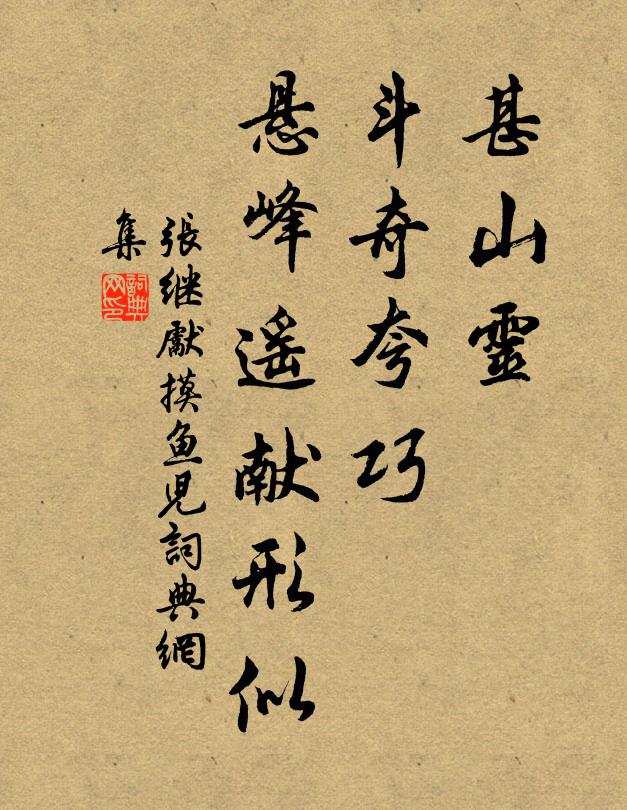 甚山靈
斗奇夸巧
悬峰遥献形似
張继獻摸鱼児詞典網
集
詞典
网印